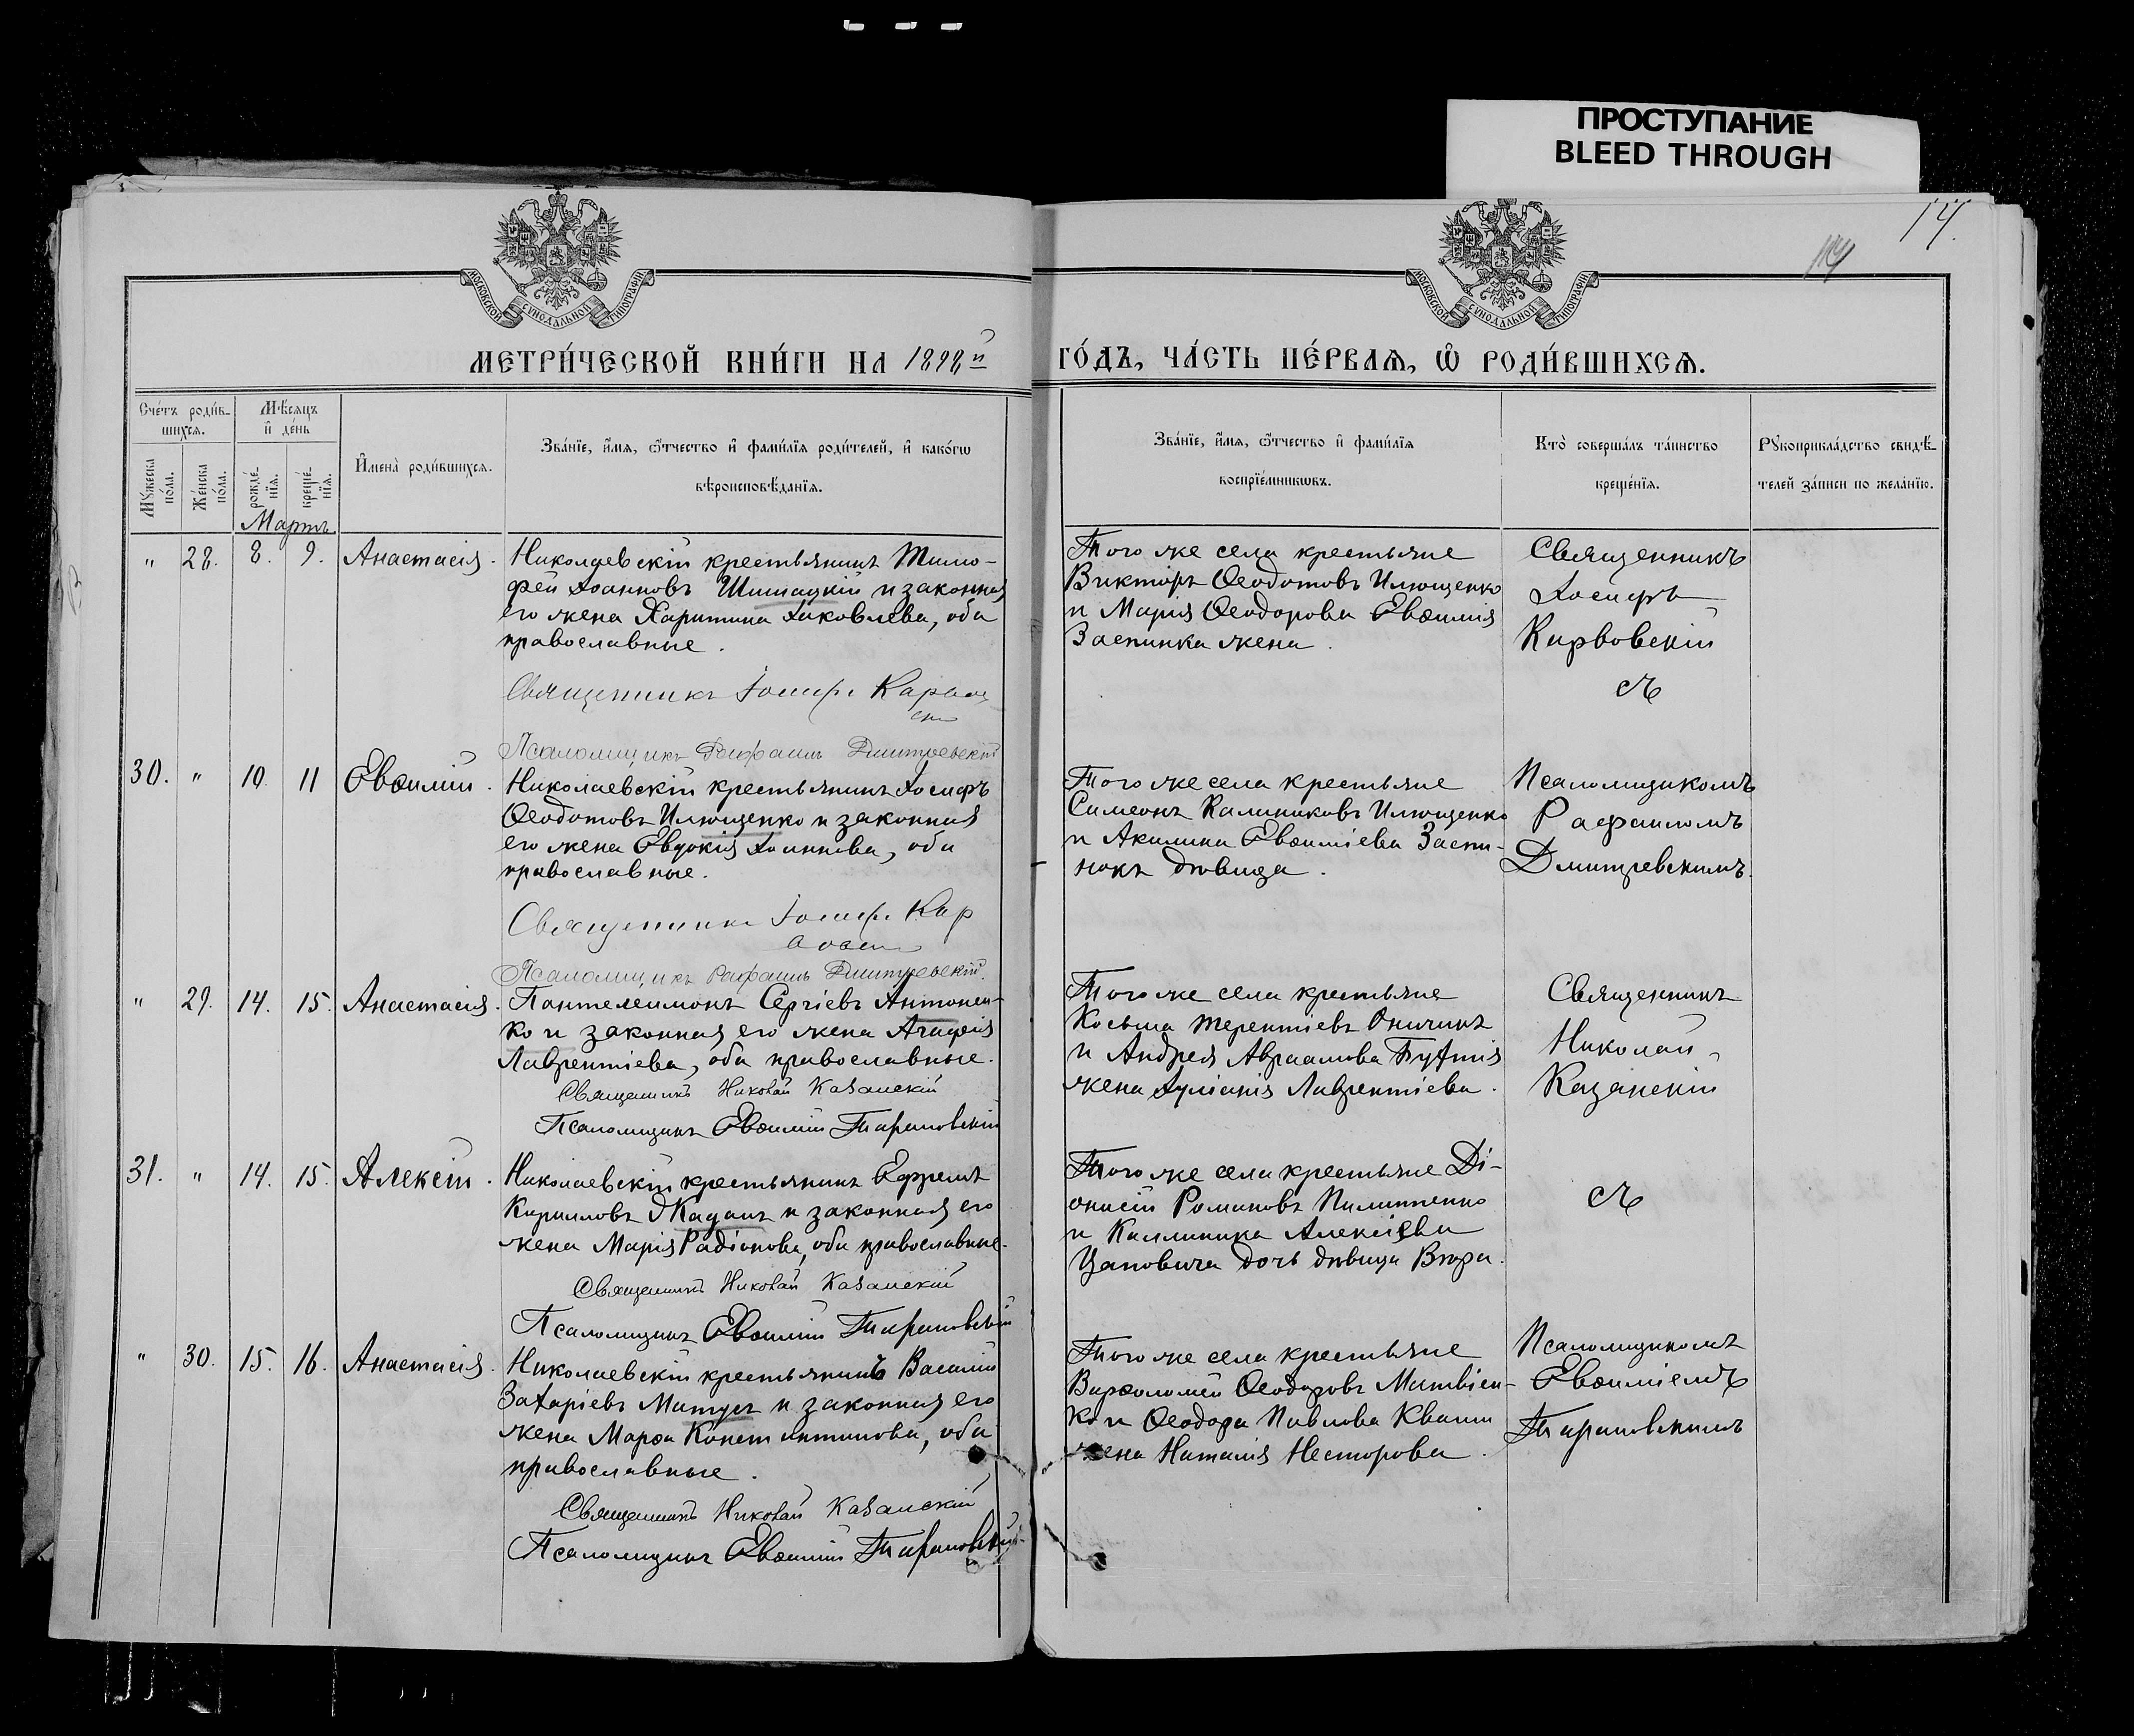 ПРОСТУПАНИЕ
BLEED THROUGH
14.
МОСКОВСКОЙ СѴНОДАЛЬНОЙ ТИПОГРАФІИ
МОСКОВСКОЙ СѴНОДАЛЬНОЙ ТИПОГРАФІИ
МЕТРИ́ЧЕСКОЙ КНИ́ГИ НА 1898й ГО́ДЪ, ЧА́СТЬ ПЕ́РВАѦ, Ѡ҆ РОДИ́ВШИХСѦ.
Сче́тъ роди́в-
шихсѧ.
Мꙋ́жеска по́ла.
Же́нска по́ла.
Мѣ́сѧцъ
и҆ де́нь
рожде́-
нїѧ.
креще́-
нїѧ.
И҆мена̀ роди́вшихсѧ.
Зва́нїе, и҆́мѧ, ѻ҆́тчество и҆ фами́лїѧ роди́телей, и҆ како́гѡ
вѣроисповѣ́данїѧ.
Зва́нїе, и҆́мѧ, ѻ҆́тчество и҆ фами́лїѧ
воспрїе́мникѡвъ.
Кто̀ соверша́лъ та́инство
креще́нїѧ.
Рꙋкоприкла́дство свидѣ́-
телей за́писи по жела́нїю.
Мартъ
" 28. 8. 9. Анастасія.
Николаевскій крестьянинъ Тимо-
фей Іоанновъ Шишацкій и законная
его жена Харитина Іаковлева, оба
православные.
Священникъ Іосифъ
Псаломщикъ Рафаилъ Дмитревскій
Того же села крестьяне
Викторъ Ѳеодотовъ Илющенко
и Марія Ѳеодорова Евѳимія
жена.
Священникъ
Іосифъ
30. " 10. 11 Евѳимій.
Николаевскій крестьянинъ Іосифъ
Ѳеодотовъ Илющенко и законная
его жена Евдокія Іоаннова, оба
православные.
Священникъ Іосифъ
Псаломщикъ Рафаилъ Дмитревскій.
Того же села крестьяне
Симеонъ Калиниковъ Илющенко
и Акилина Евѳиміева
дѣвица.
Псаломщикомъ
Рафаиломъ
Дмитревскимъ.
" 29. 14. 15. Анастасія.
Пантелеимонъ Сергіевъ Антонен-
ко и законная его жена Агафія
Лаврентіева, оба православные.
Священникъ Николай Казанскій
Псаломщикъ Евѳимій Тарановскій
Того же села крестьяне
Косьма Терентіевъ
и Андрея Авраамова
жена Іуліанія Лаврентіева.
Священникъ
Николай
Казанскій
31. " 14. 15. Алексій.
Николаевскій крестьянинъ Ефремъ
Кирилловъ и законная его
жена Марія Радіонова, оба православные.
Священникъ Николай Казанскій
Псаломщикъ Евѳимій Тарановскій
Того же села крестьяне Ді-
онисій Романовъ Пилипенко
и Каллиника Алексіева
дочь дѣвица Вѣра.
" 30. 15. 16. Анастасія.
Николаевскій крестьянинъ Василій
Захаріевъ Матусъ и законная его
жена Марѳа Константинова, оба
православные.
Священникъ Николай Казанскій
Псаломщикъ Евѳимій Тарановскій
Того же села крестьяне
Варѳоломей Ѳеодоровъ Матвіен-
ко и Ѳеодора Павлова Кваши
жена Наталія Несторова.
Псаломщикомъ
Евѳиміемъ
Тарановскимъ